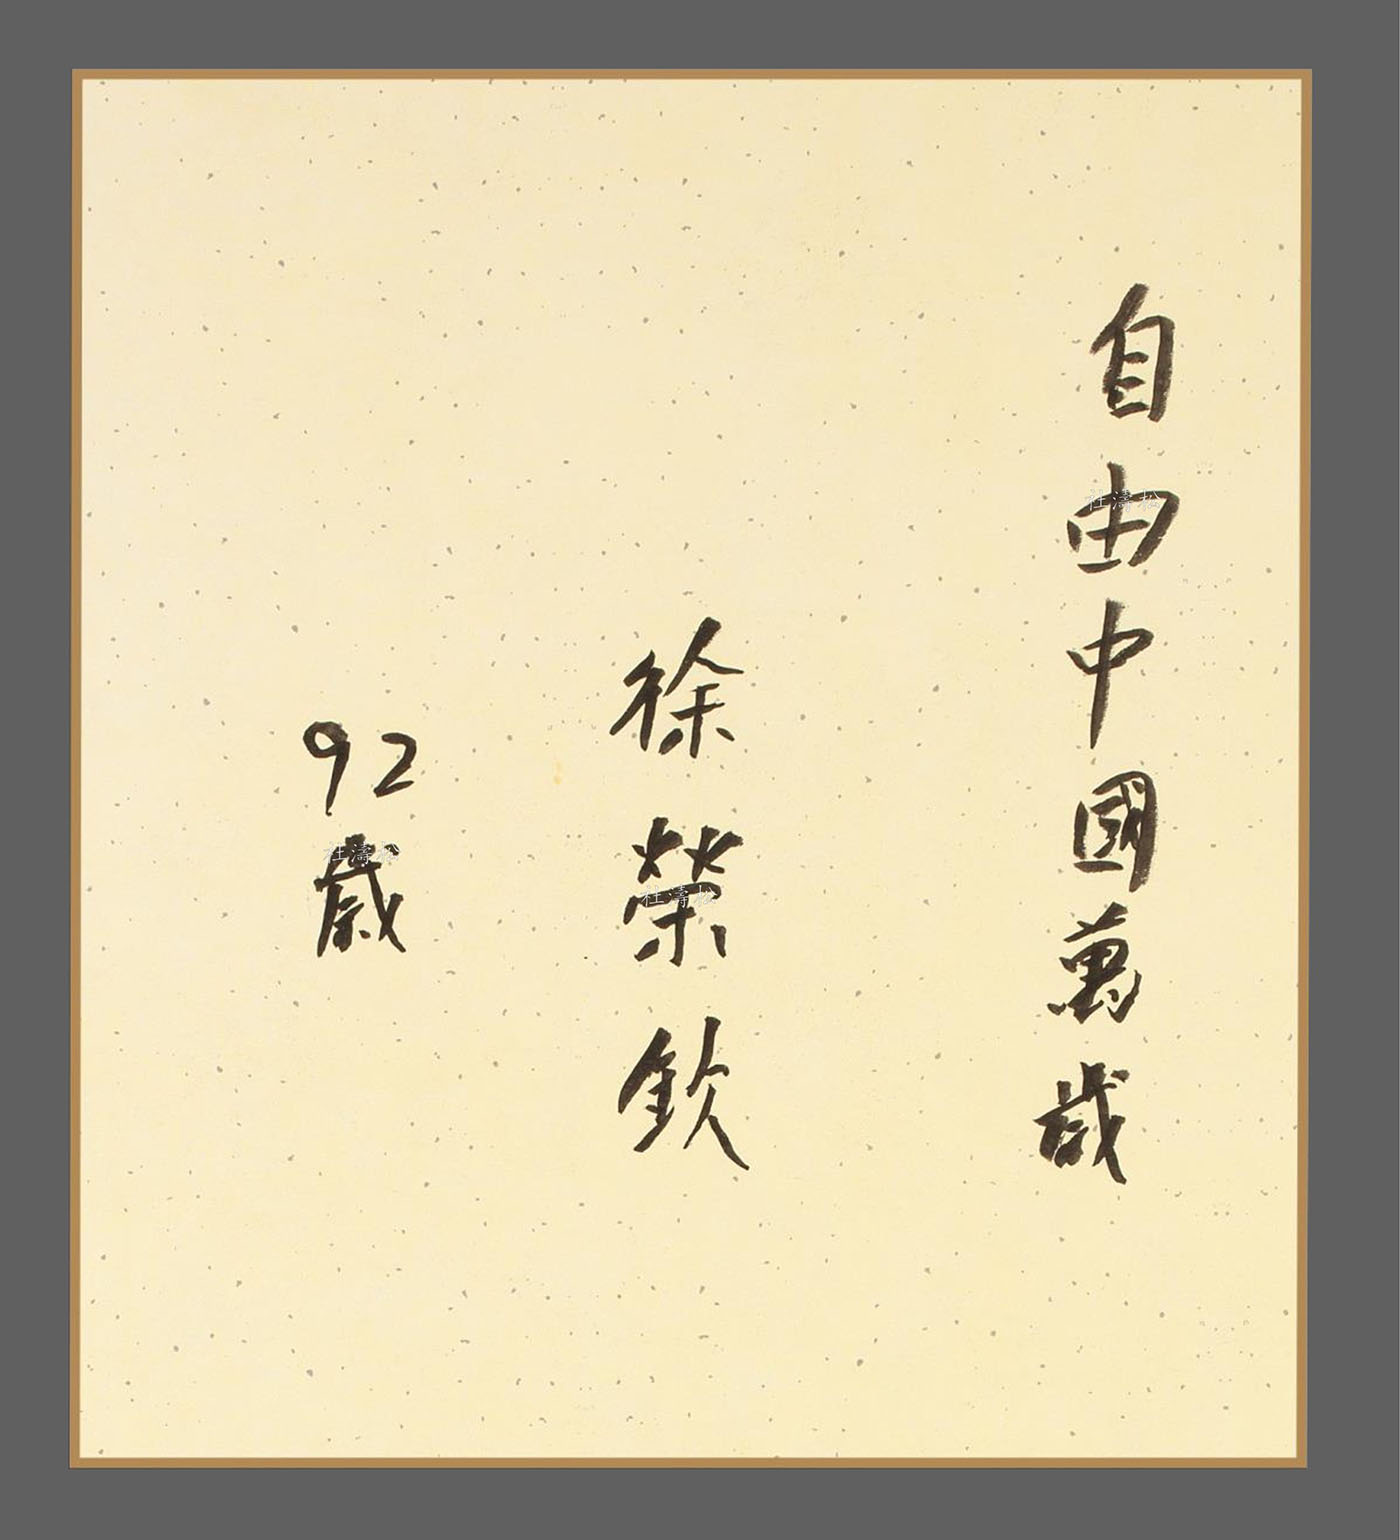 自由中國萬歲
徐榮欽
92
歲
杜濤松
杜濤松
杜濤松